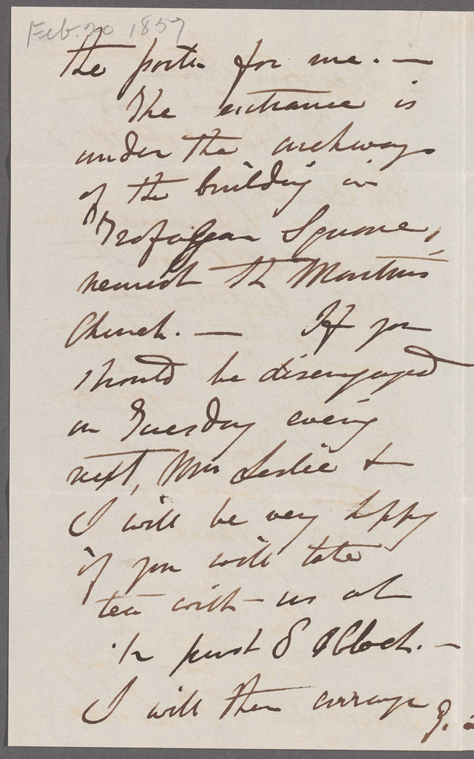 Feb. 20 1857
the porter for me. —
The entrance is
under the archways
of the building in
Trafalgar Square,
nearest St Martins
Church. — If you
should be disengaged
on Tuesday evening
next, Mrs Leslie &
I will be very happy
if you will take
tea with us at
½ past 8 o'Clock. —
I will then arrange